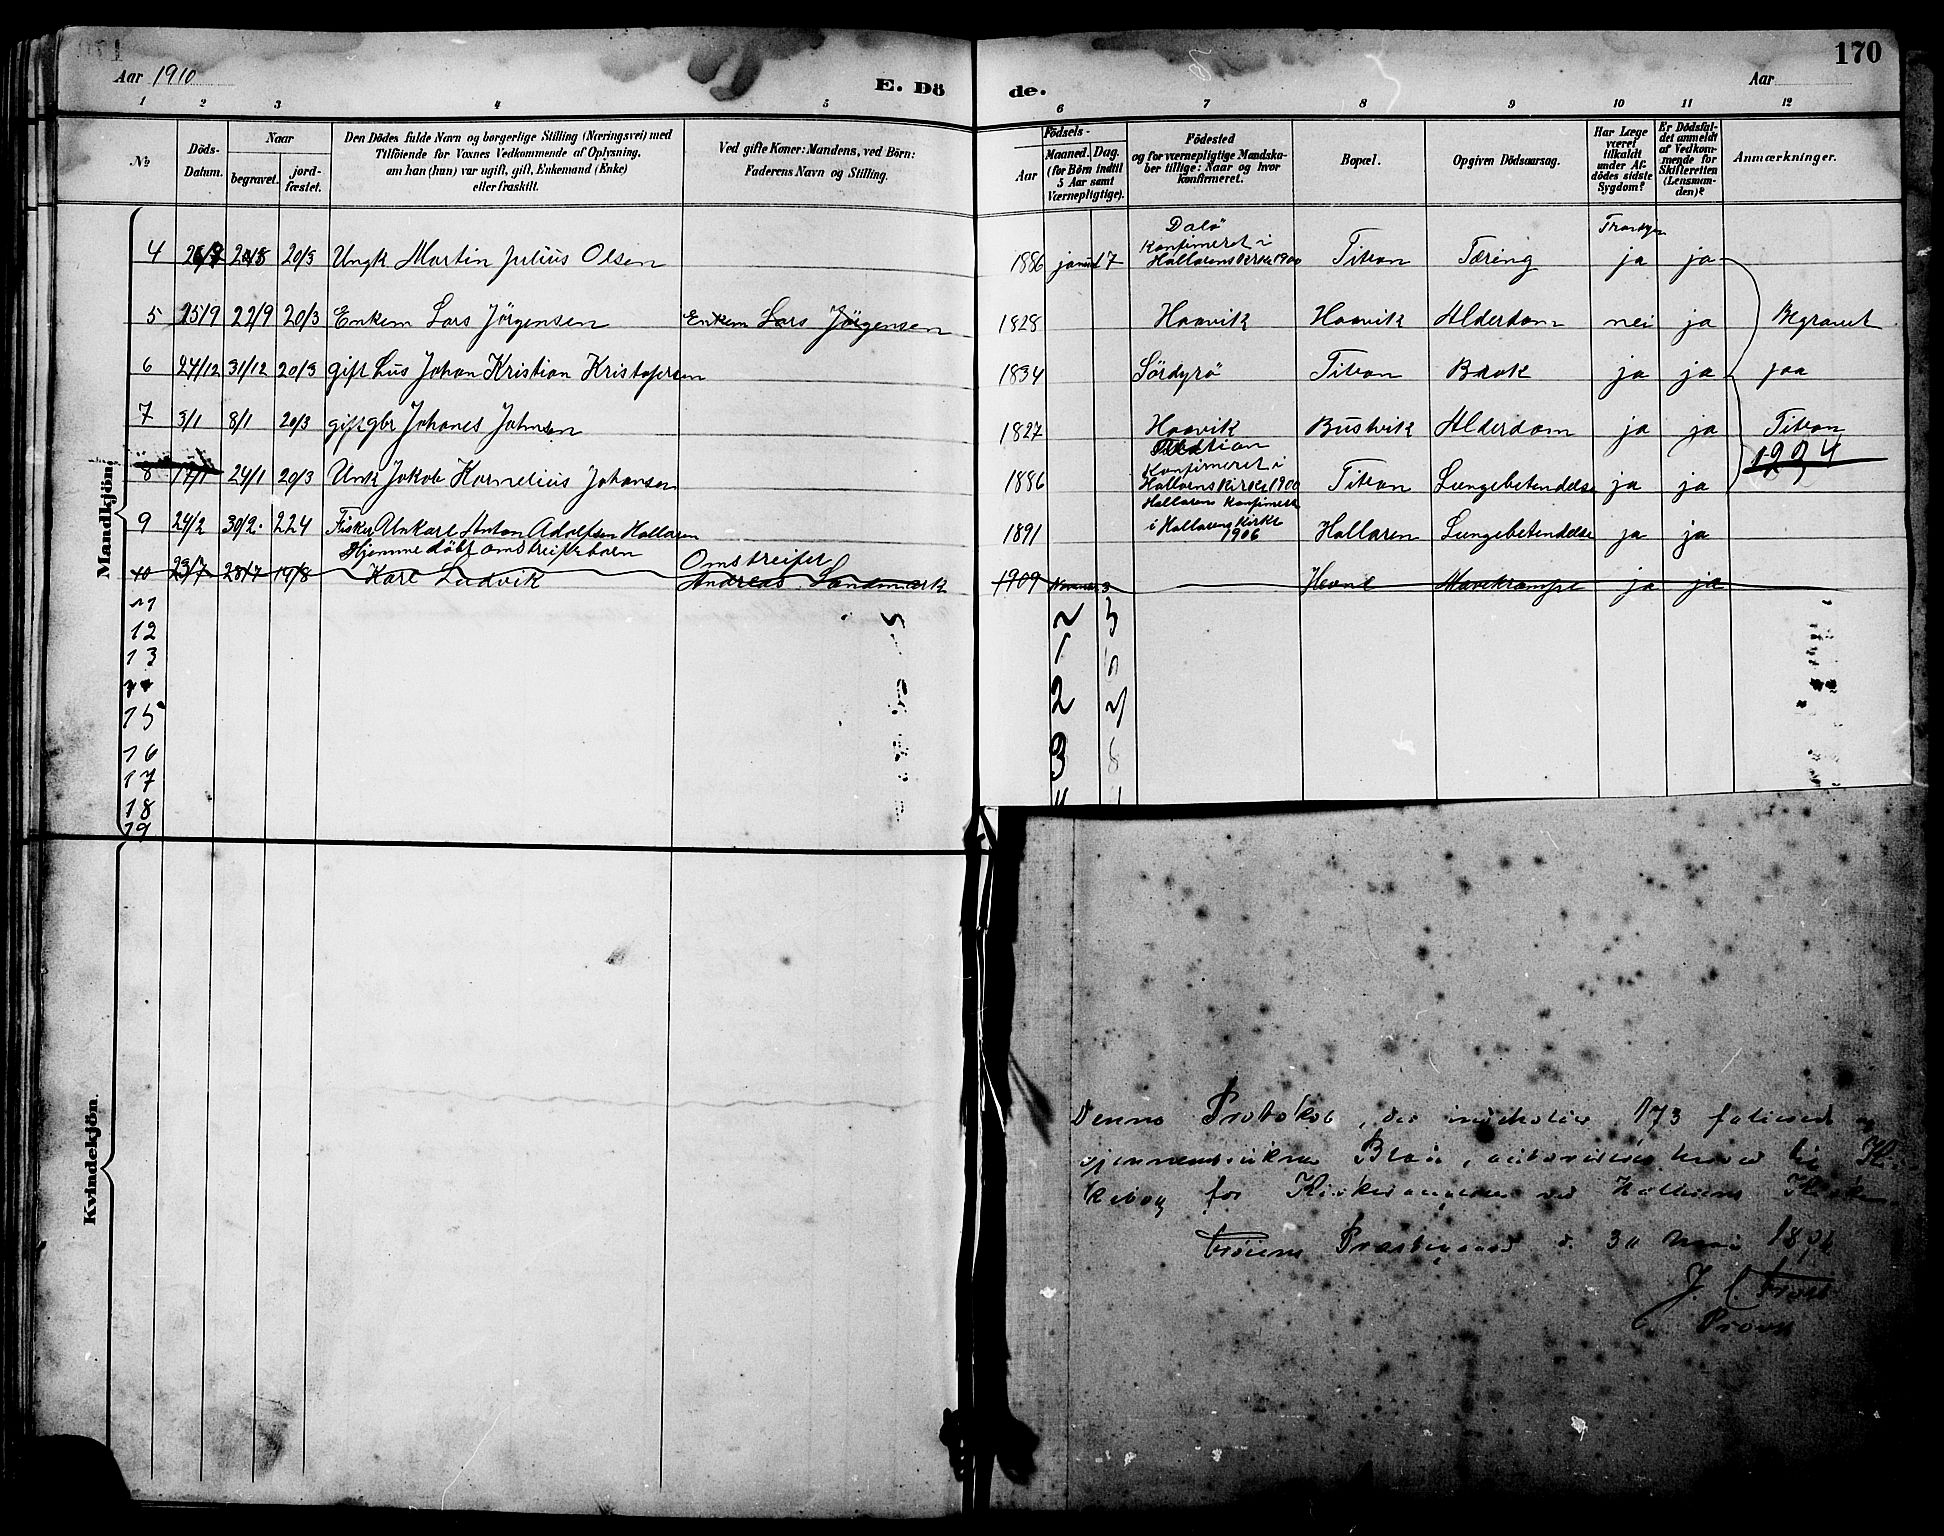 170
Aar 1910
E. Dö
de.
Aar
1 2 3 4 5 6 7 8 9 10 11 12
№
Döds-
Datum.
Naar
begravet.
jord-
fæstet.
Den Dödes fulde Navn og borgerlige Stilling (Næringsvei) med
Tilföiende for Voxnes Vedkommende af Oplysning.
om han (hun) var ugift, gift, Enkemand (Enke)
eller fraskilt.
Ved gifte Koner: Mandens, ved Börn:
Faderens Navn og Stilling.
Födsels-
Aar
Maaned. Dag.
(for Börn indtil
5 Aar samt
Værnepligtige).
Födested
og for værnepligtige Mandska-
ber tillige: Naar og hvor
konfirmeret.
Bopæl.
Opgiven Dödsaarsag.
Har Læge
været
tilkaldt
under Af-
dödes sidste
Sygdom?
Er Dödsfal-
det anmeldt
af Vedkom-
mende for
Skifteretten
(Lensman-
den)?
Anmærkninger.
Mandkjön.
4 20/3 Ungk Martin Julius Olsen 1886 17 Dalö Konfirmeret i Hallarens Kirke 1900 Titran Tæring ja ja
5 15/9 22/9 20/3 Enkem Lars Jörgensen Enkem Lars Jörgensen 1828 Haavik Haavik Alderdom nei ja Begravet
6 27/12 31/12 20/3 gift Hus Johan Kristian Kristofersen 1834 Sördyrö Titran Brok ja ja paa
7 3/1 8/1 20/3 gift gbr Johanes Johnsen 1827 Haavik Bustvik Alderdom ja ja Titran
8 17/1 24/1 20/3 Unk Jakob Kornelius Johansen 1886 Konfirmeret i Hallarens Kirke 1900 Titran Lungebetendelse ja ja 1224
9 24/2 30/2. 224 Fisker Unkarl Anton Adolfsen Hallaren 1891 Hallaren Konfirmert i Hallarens Kirke 1906 Hallaren Lungebetendelse ja ja
10 23/7 28/7 14/8 Hjemmedöbt omstreiferbarn Karl Ludvik Omstreifer Andreas Landmark 1909 November 3 Hevne Mavekrampe ja ja
11
12
13
15
16
17
18
19
Kvindekjön.
Denne Protokol, der indeholder 173 folierede og
gjennemdragne Blade, autoriseres herved til Kir-
kebog for Kirkesangeren ved Hallarens Kirke.
Fröiens Præstegaard d. 30 Mai
J. C. Frost
Provst